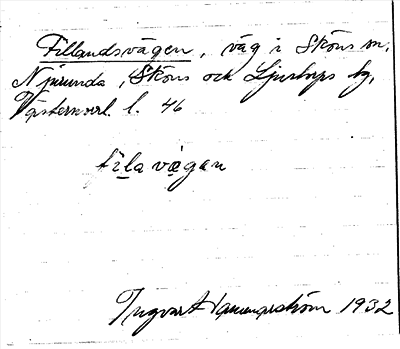 Fillandsvägen, väg i Sköns sn,
Njurunda, Sköns och Ljustorps tg,
Västernorrl. l. 46
fila vægan
Ingvar 1932